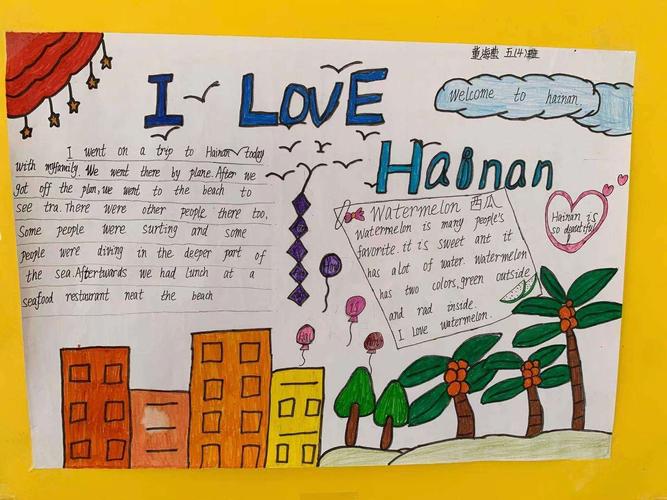 五(4)班
I LOVE
Hainan
Welcome to hainan
I went on a trip to Hainan today
with my family. We went there by plane. After we
got off the plan, we went to the beach to
see tra. There were other people there too,
Some people were surting and some
people were diving in the deeper part of
the sea. Afterwards we had lunch at a
seafood restaurant neat the beach
Watermelon 西瓜
Watermelon is many people's
favorite. it is sweet ant it
has a lot of water. watermelon
has two colors, green outside
and rad inside.
I Love watermelon.
Hainan is
so beautiful